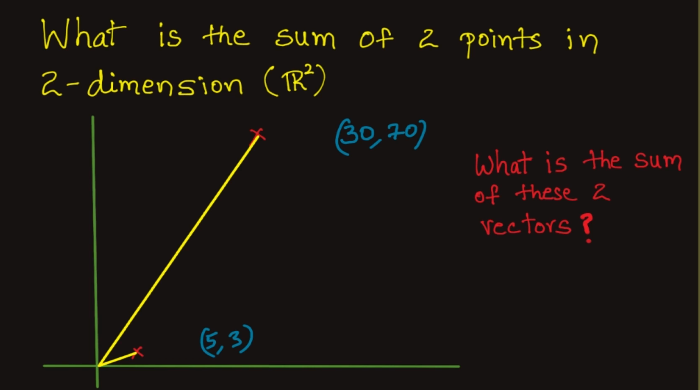 What is the sum of 2 points in
2-dimension (ℝ²)
(30,70)
What is the sum
of these 2
vectors?
(5,3)